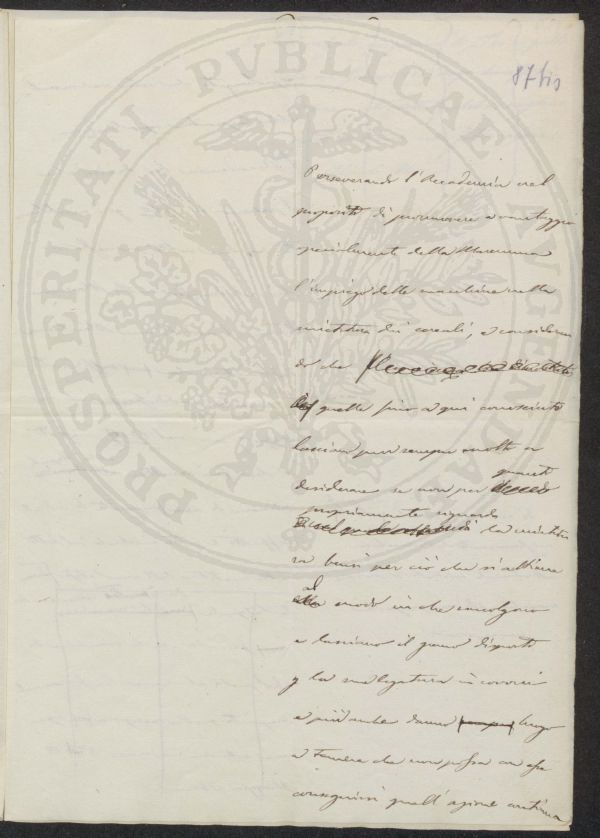 PROSPERITATI PVBLICAE AVGENDAE
87 bis
Perseverando l'Accademia nel
proposito di promuovere a vantaggio
specialmente della Maremma
l'impiego delle macchine nella
mietitura dei cereali, e consideran
do che
quelle fino a qui conosciute
lasciano pur sempre molto a
desiderare se non per quanto
propriamente riguarda
la mietitu
ra bensì per ciò che si attiene
al modo in che
e lasciano il grano disposto
p la sua legatura in covoni
e più anche danno luogo
a temere che non possa con esse
conseguirsi quell'azione continua